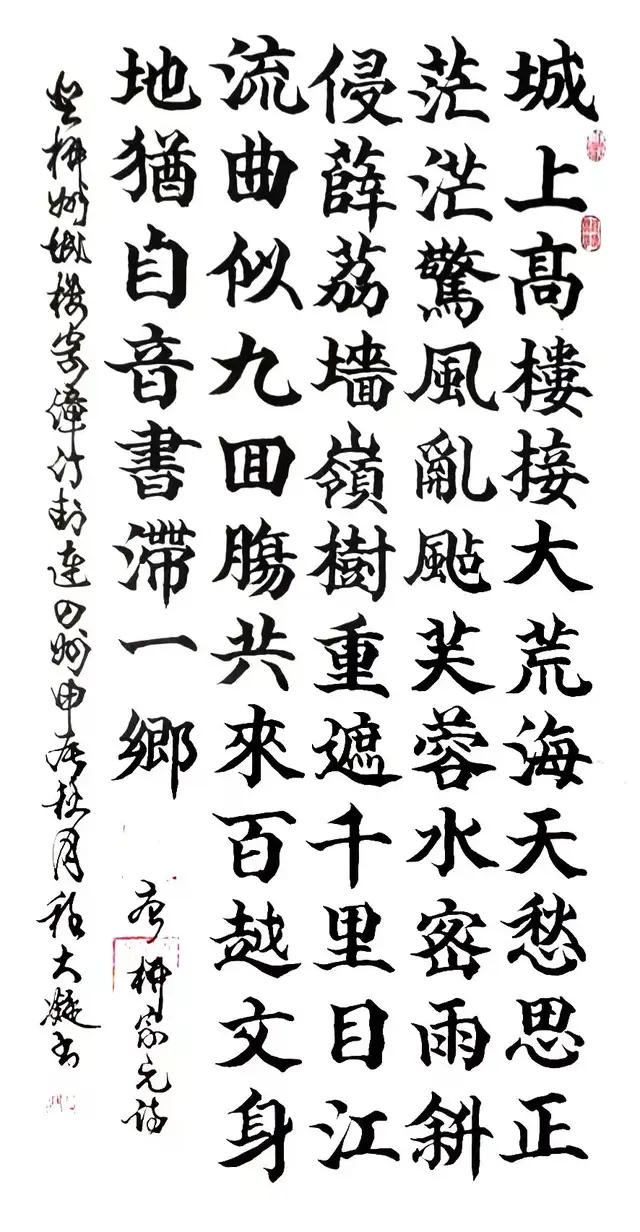 城上高樓接大荒海天愁思正
茫茫驚風亂颭芙蓉水密雨斜
侵薜荔墙嶺樹重遮千里目江
流曲似九囬膓共來百越文身
地猶自音書滯一鄉
唐柳宗元詩
登柳州城樓寄漳汀封連四州甲辰秋月程大凝書